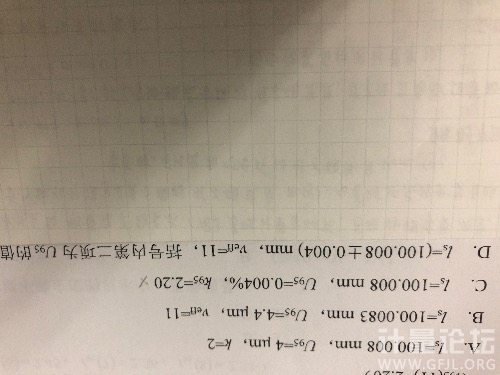 t₉₅(11)=2.20)
A. lₛ=100.008 mm，U₉₅=4 μm，k=2
B. lₛ=100.0083 mm，U₉₅=4.4 μm，νeff=11
C. lₛ=100.008 mm，U₉₅=0.004%，k₉₅=2.20 ×
D. lₛ=(100.008±0.004) mm，νeff=11，括号内第二项为 U₉₅的值
计量论坛
WWW.GFJL.ORG